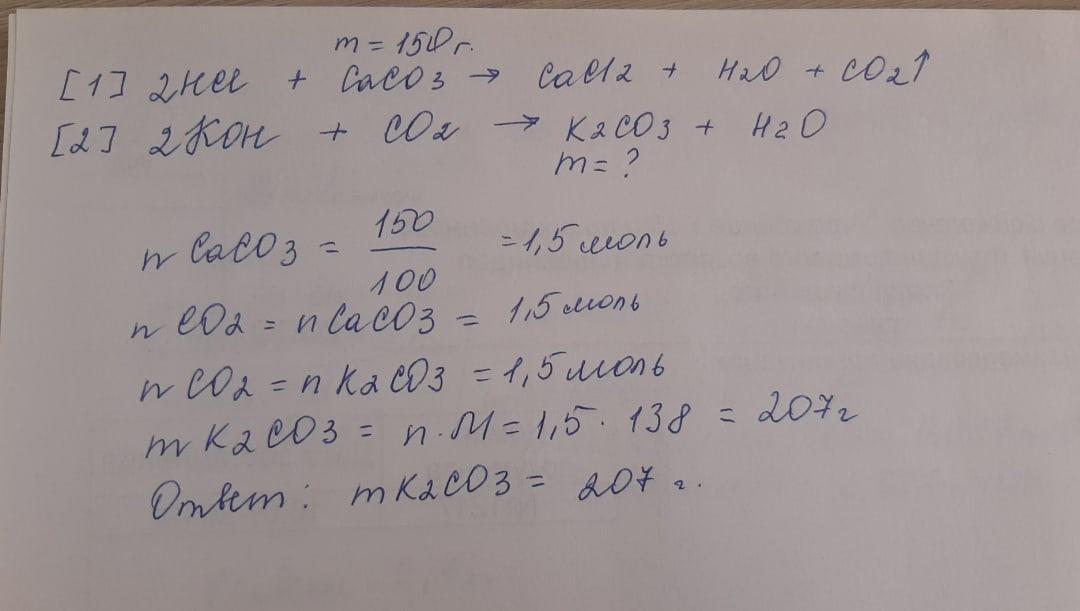 m = 150 г.
[1] 2HCl + CaCO3 → CaCl2 + H2O + CO2↑
[2] 2KOH + CO2 → K2CO3 + H2O
m = ?
n CaCO3 = 150/100 = 1,5 моль
n CO2 = n CaCO3 = 1,5 моль
n CO2 = n K2CO3 = 1,5 моль
m K2CO3 = n · M = 1,5 · 138 = 207 г
Ответ: m K2CO3 = 207 г.